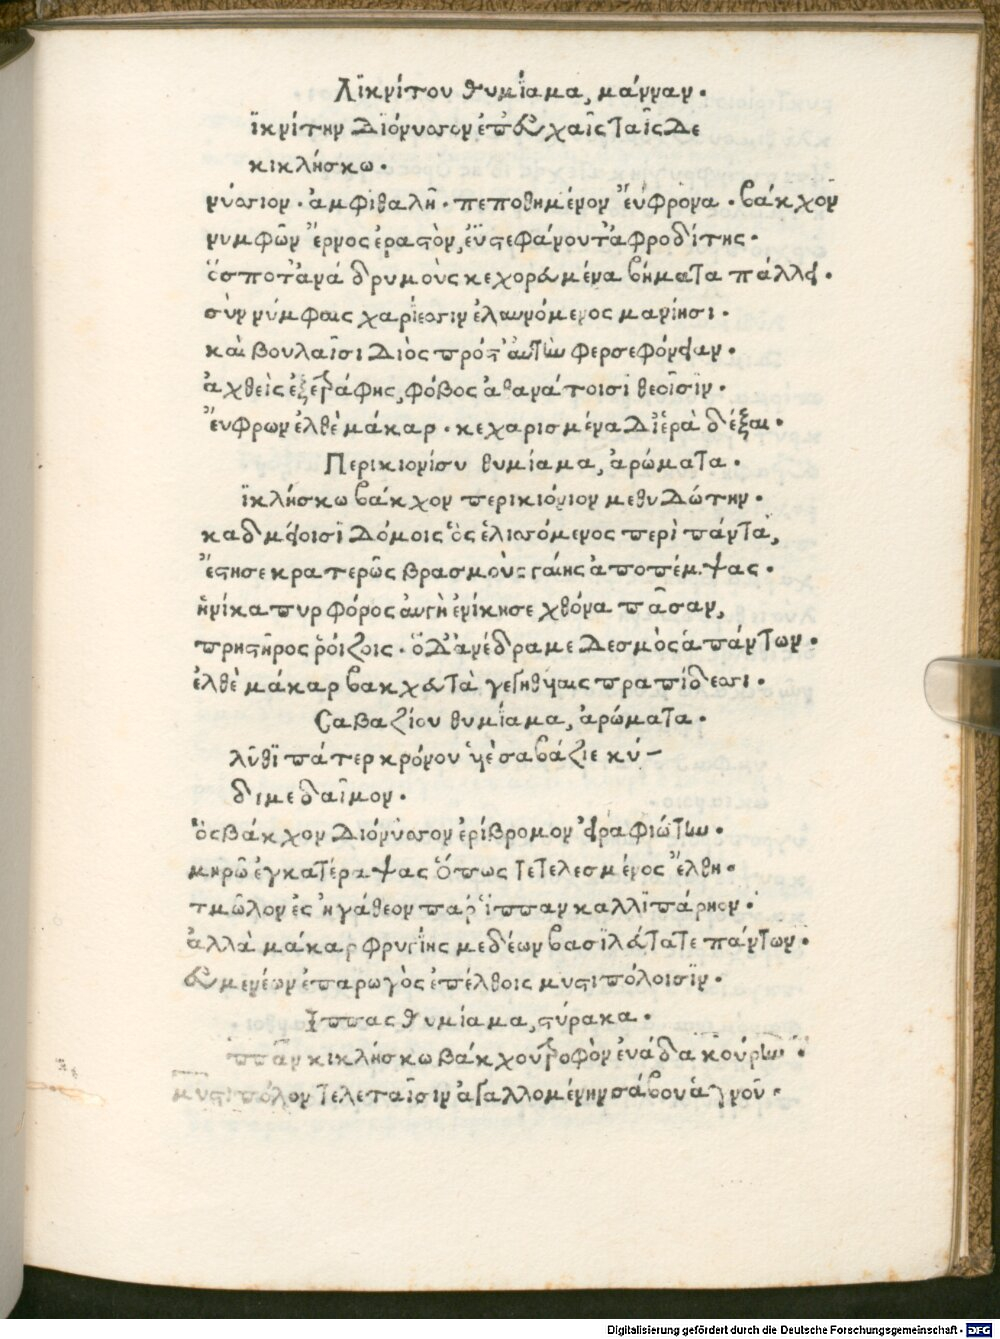 Λϊκνίτου θυμίαμα, μάνναν.
ϊκνίτην Διόνυσον ἐπ' εὐχαῖς ταῖς δε
κικλήσκω.
νύσιον. ἀμφιθαλῆ. πεποθημένον ἔυφρονα. βάκχον
νυμφῶν ἔρνος ἐραστὸν, ἐϋστεφάνου τ' ἀφροδίτης.
ὅς ποτ' ἀνά δρυμοὺς κεχορευμένα βήματα πάλλει.
σὺν νύμφαις χαρίεσιν ἐλαυνόμενος μανίησι.
καὶ βουλαῖσι Διὸς πρός τ' ἀυτὴν φερσεφόνειαν.
ἀχθεὶς ἐξετράφης, φόβος ἀθανάτοισι θεοῖσϊν.
ἔυφρων ἐλθὲ μάκαρ. κεχαρισμένα δ' ἱερὰ δέξαι.
Περικιονίου θυμίαμα, ἀρώματα.
ϊκλήσκω βάκχον περικιόνιον μεθυδώτην.
καδμείοισι δόμοις ὃς ἑλισσόμενος περὶ πάντα,
ἔστησε κρατερῶς βρασμοὺς γαίης ἀποπέμψας.
ἡνίκα πυρφόρος ἀυγὴ ἐνίκησε χθόνα πᾶσαν,
πρηστῆρος ῥόιζοις. ὅ δ' ἀνέδραμε δεσμὸς ἁπάντων.
ἐλθὲ μάκαρ βακχευτὰ γεγηθήαις πραπίδεσσι.
Σαβαζίου θυμίαμα, ἀρώματα.
λῦθϊ πάτερ κρόνου ὑιὲ σαβάζιε κύ–
διμε δαῖμον.
ὃς βάκχον Διόνυσον ἐρίβρομον εἰραφιώτην.
μηρῶ ἐγκατέραψας ὅπως τετελεσμένος ἔλθη.
τμῶλον ἐς ἠγάθεον παρ' ἵππαν καλλιπάρηον.
ἀλλὰ μάκαρ φρυγίης μεδέων βασϊλεύτατε πάντων.
εὐμενέων ἐπαρωγὸς ἐπέλθοις μυστιπόλοισϊν.
Ιππας θυμίαμα, στύρακα.
ππαν κικλήσκω βάκχου τροφὸν ἐνάδα κούρην.
μυστιπόλον τελεταῖσιν ἀγαλλομένην σάβου ἁγνοῦ.
Digitalisierung gefördert durch die Deutsche Forschungsgemeinschaft - DFG